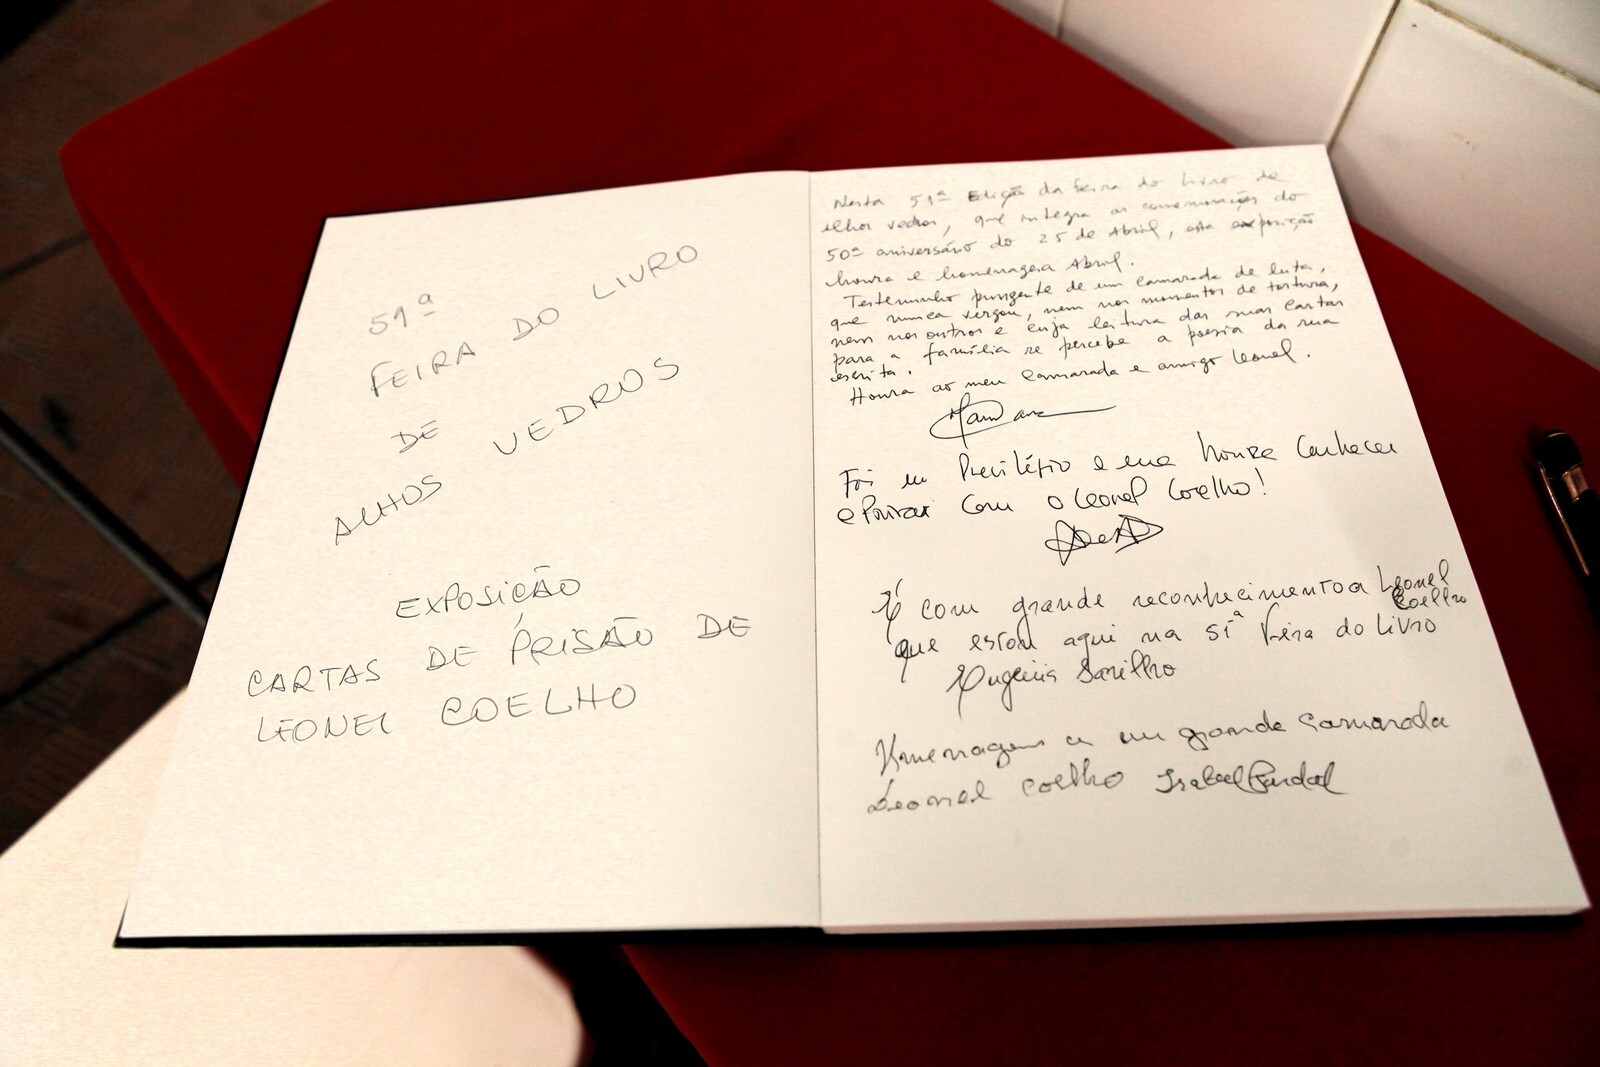 51ª
FEIRA DO LIVRO
DE
ALHOS VEDROS
EXPOSIÇÃO
CARTAS DE PRISÃO DE
LEONEL COELHO
Nesta 51ª Edição da feira do livro de
alhos vedros, que integra as comemorações do
50º aniversário do 25 de Abril, esta exposição
honra e homenageia Abril.
Testemunho pungente de um camarada de luta,
que nunca vergou, nem nos momentos de tortura,
nem nos outros e cuja leitura das suas cartas
para a família se percebe a poesia da sua
escrita.
Honra ao meu camarada e amigo Leonel.
Foi um Privilégio e uma honra Conhecer
e Privar Com o Leonel Coelho!
É com grande reconhecimento a Leonel
Coelho
que estou aqui na 51ª Feira do Livro
Eugénia Sarilho
Homenagem a um grande camarada
Leonel Coelho Isabel